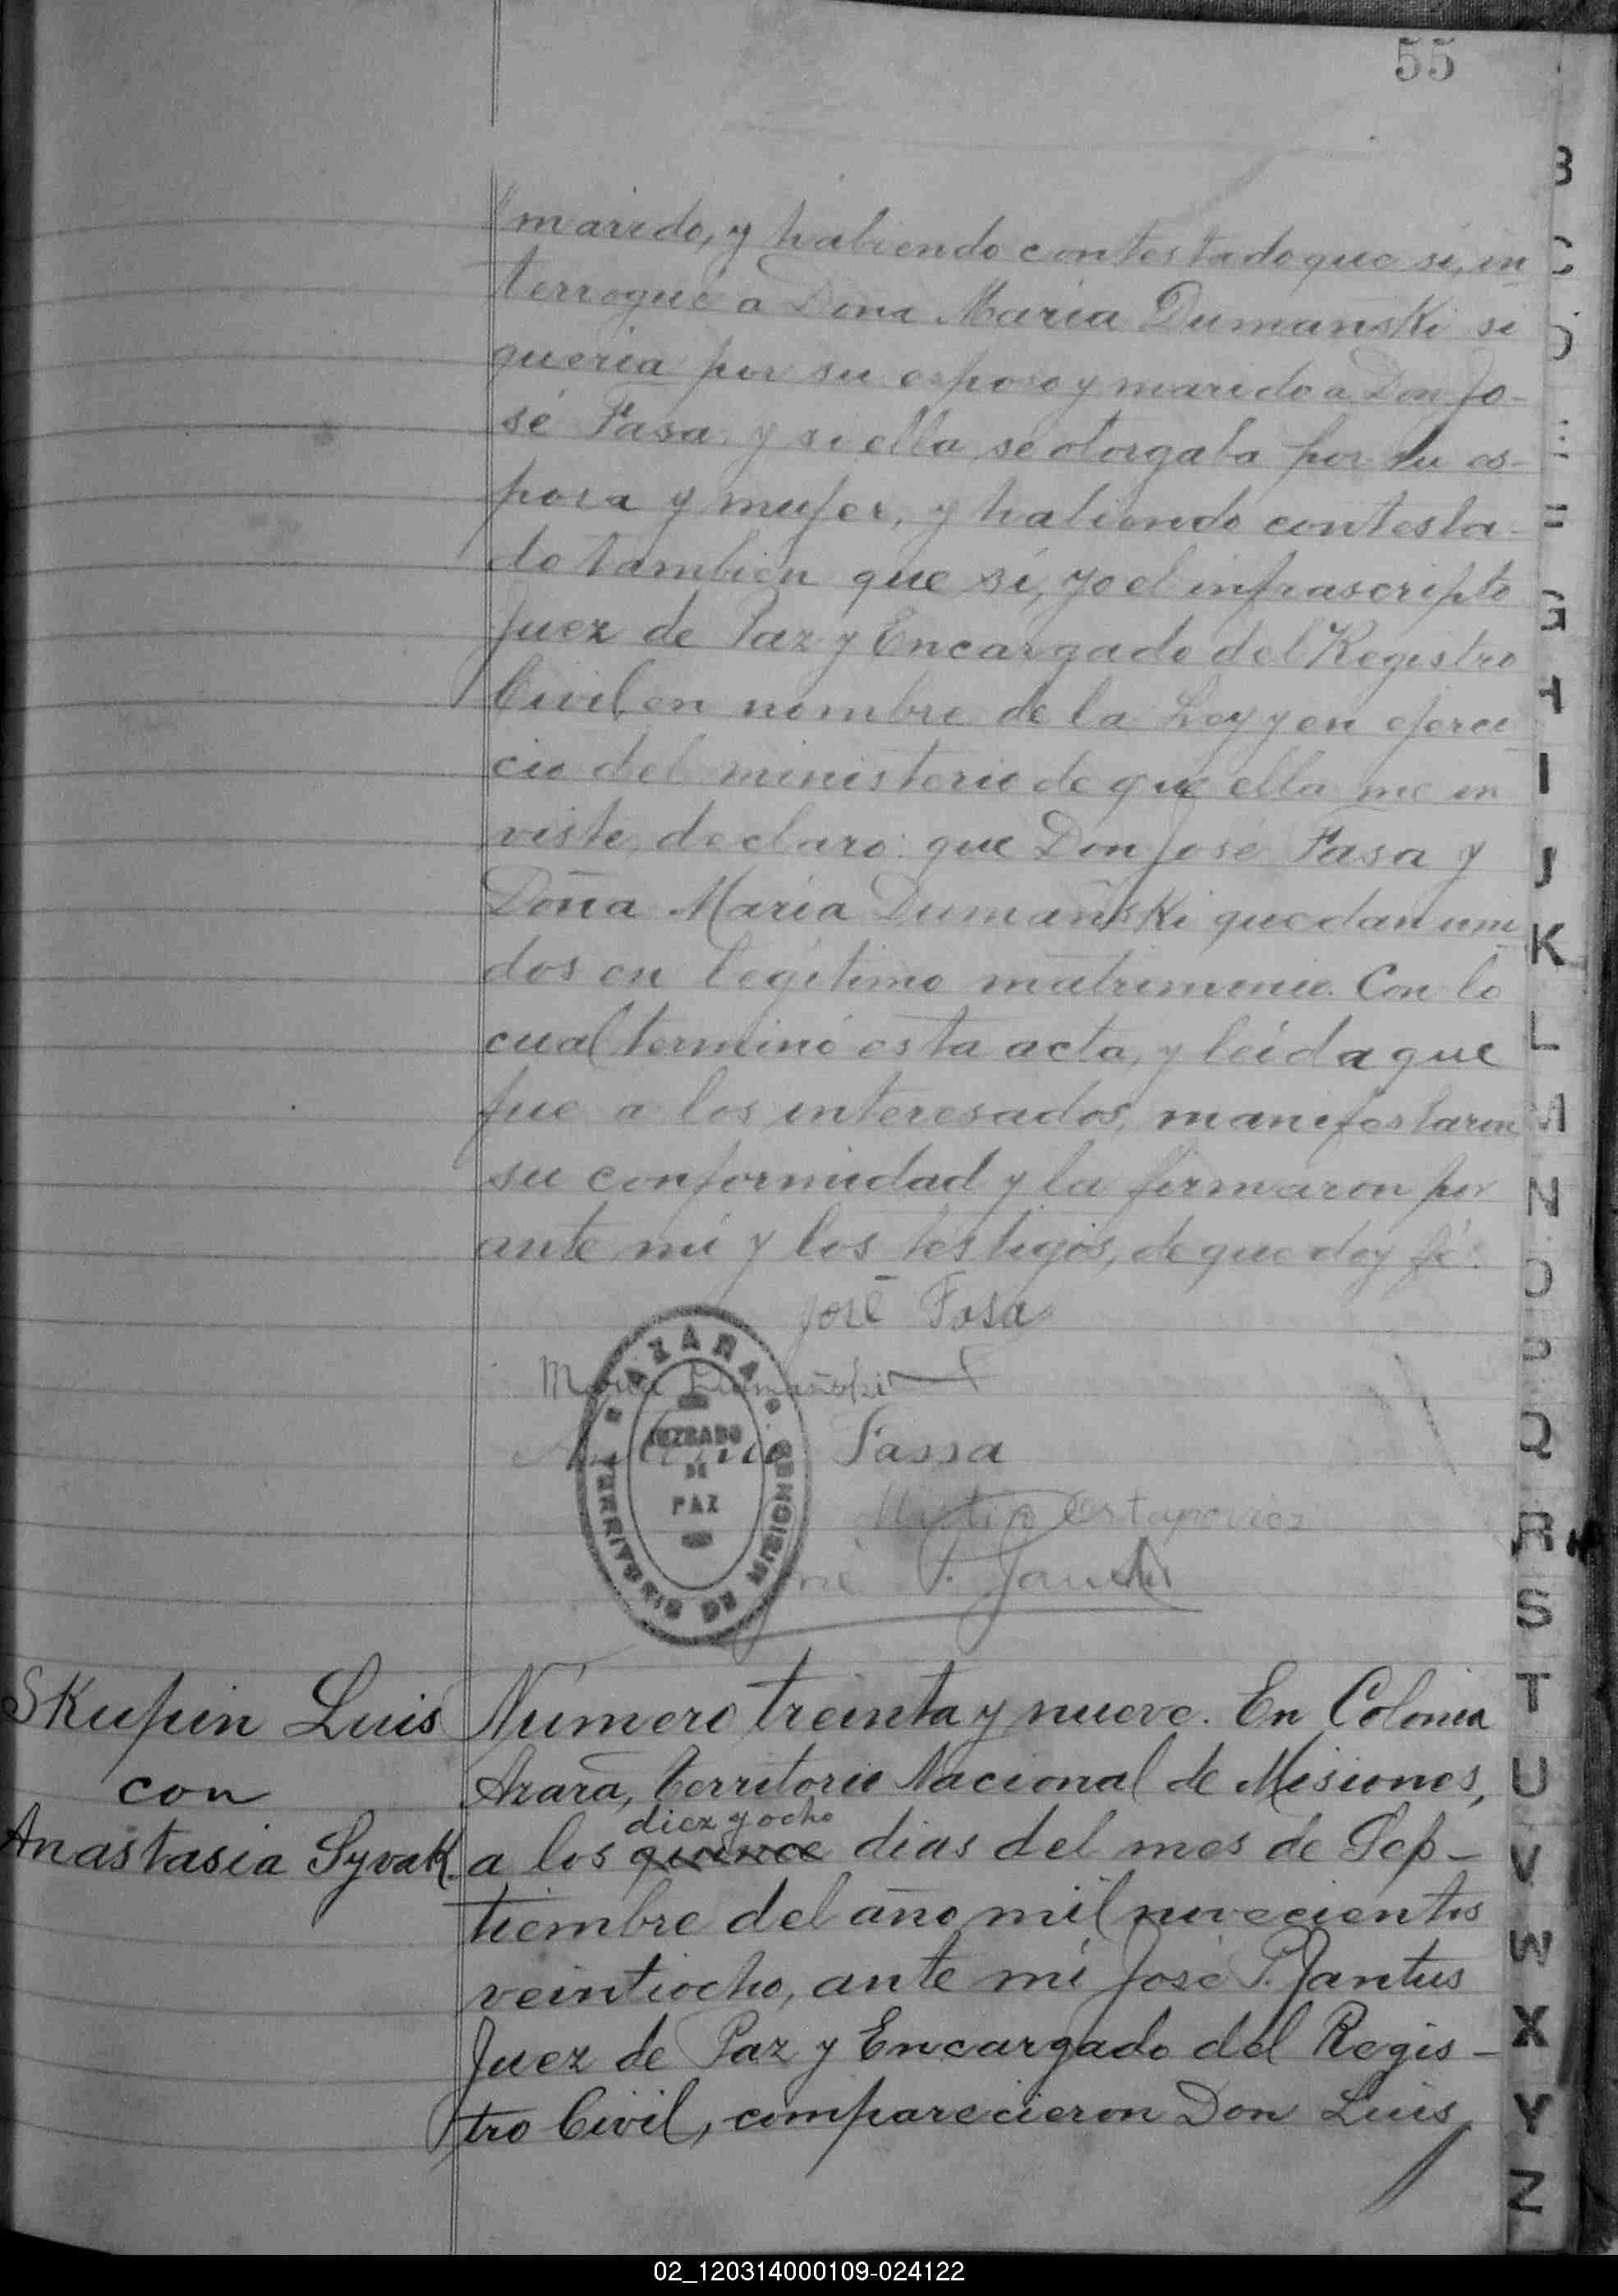 55
marido, y habiendo contestado que sí, in
terrogué a Dona María Dumanski si
queria por su esposo y marido a Don Jo-
sé Fasa y si ella se otorgaba por su es-
posa y mujer, y habiendo contesta-
do tambien que sí, yo el infrascripto
Juez de Paz y Encargado del Registro
Civil, en nombre de la Ley y en ejerci
cio del ministerio de que ella me in
viste, declaro: que Don José Fasa y
Doña María Dumañski quedan uni
dos en legítimo matrimonio. Con lo
cual terminó esta acta, y leída que
fue a los interesados, manifestaron
su conformidad y la firmaron por
ante mí y los testigos, de que doy fé.
José Fasa
Maria Dumañski
Fassa
Ostapowicz
José P. Jantus
AZARA
JUZGADO
DE
PAZ
TERRITORIO DE MISIONES
Skupin Luis
con
Anastasia Syvak.
Número treinta y nueve. En Colonia
Azara, territorio Nacional de Misiones,
diez y ocho
a los quince dias del mes de Sep-
tiembre del año mil novecientos
veintiocho, ante mí José P. Jantus
Juez de Paz y Encargado del Regis-
tro Civil, comparecieron Don Luis
B
C
D
E
F
G
H
I
J
K
L
M
N
O
P
Q
R
S
T
U
V
W
X
Y
Z
02_120314000109-024122